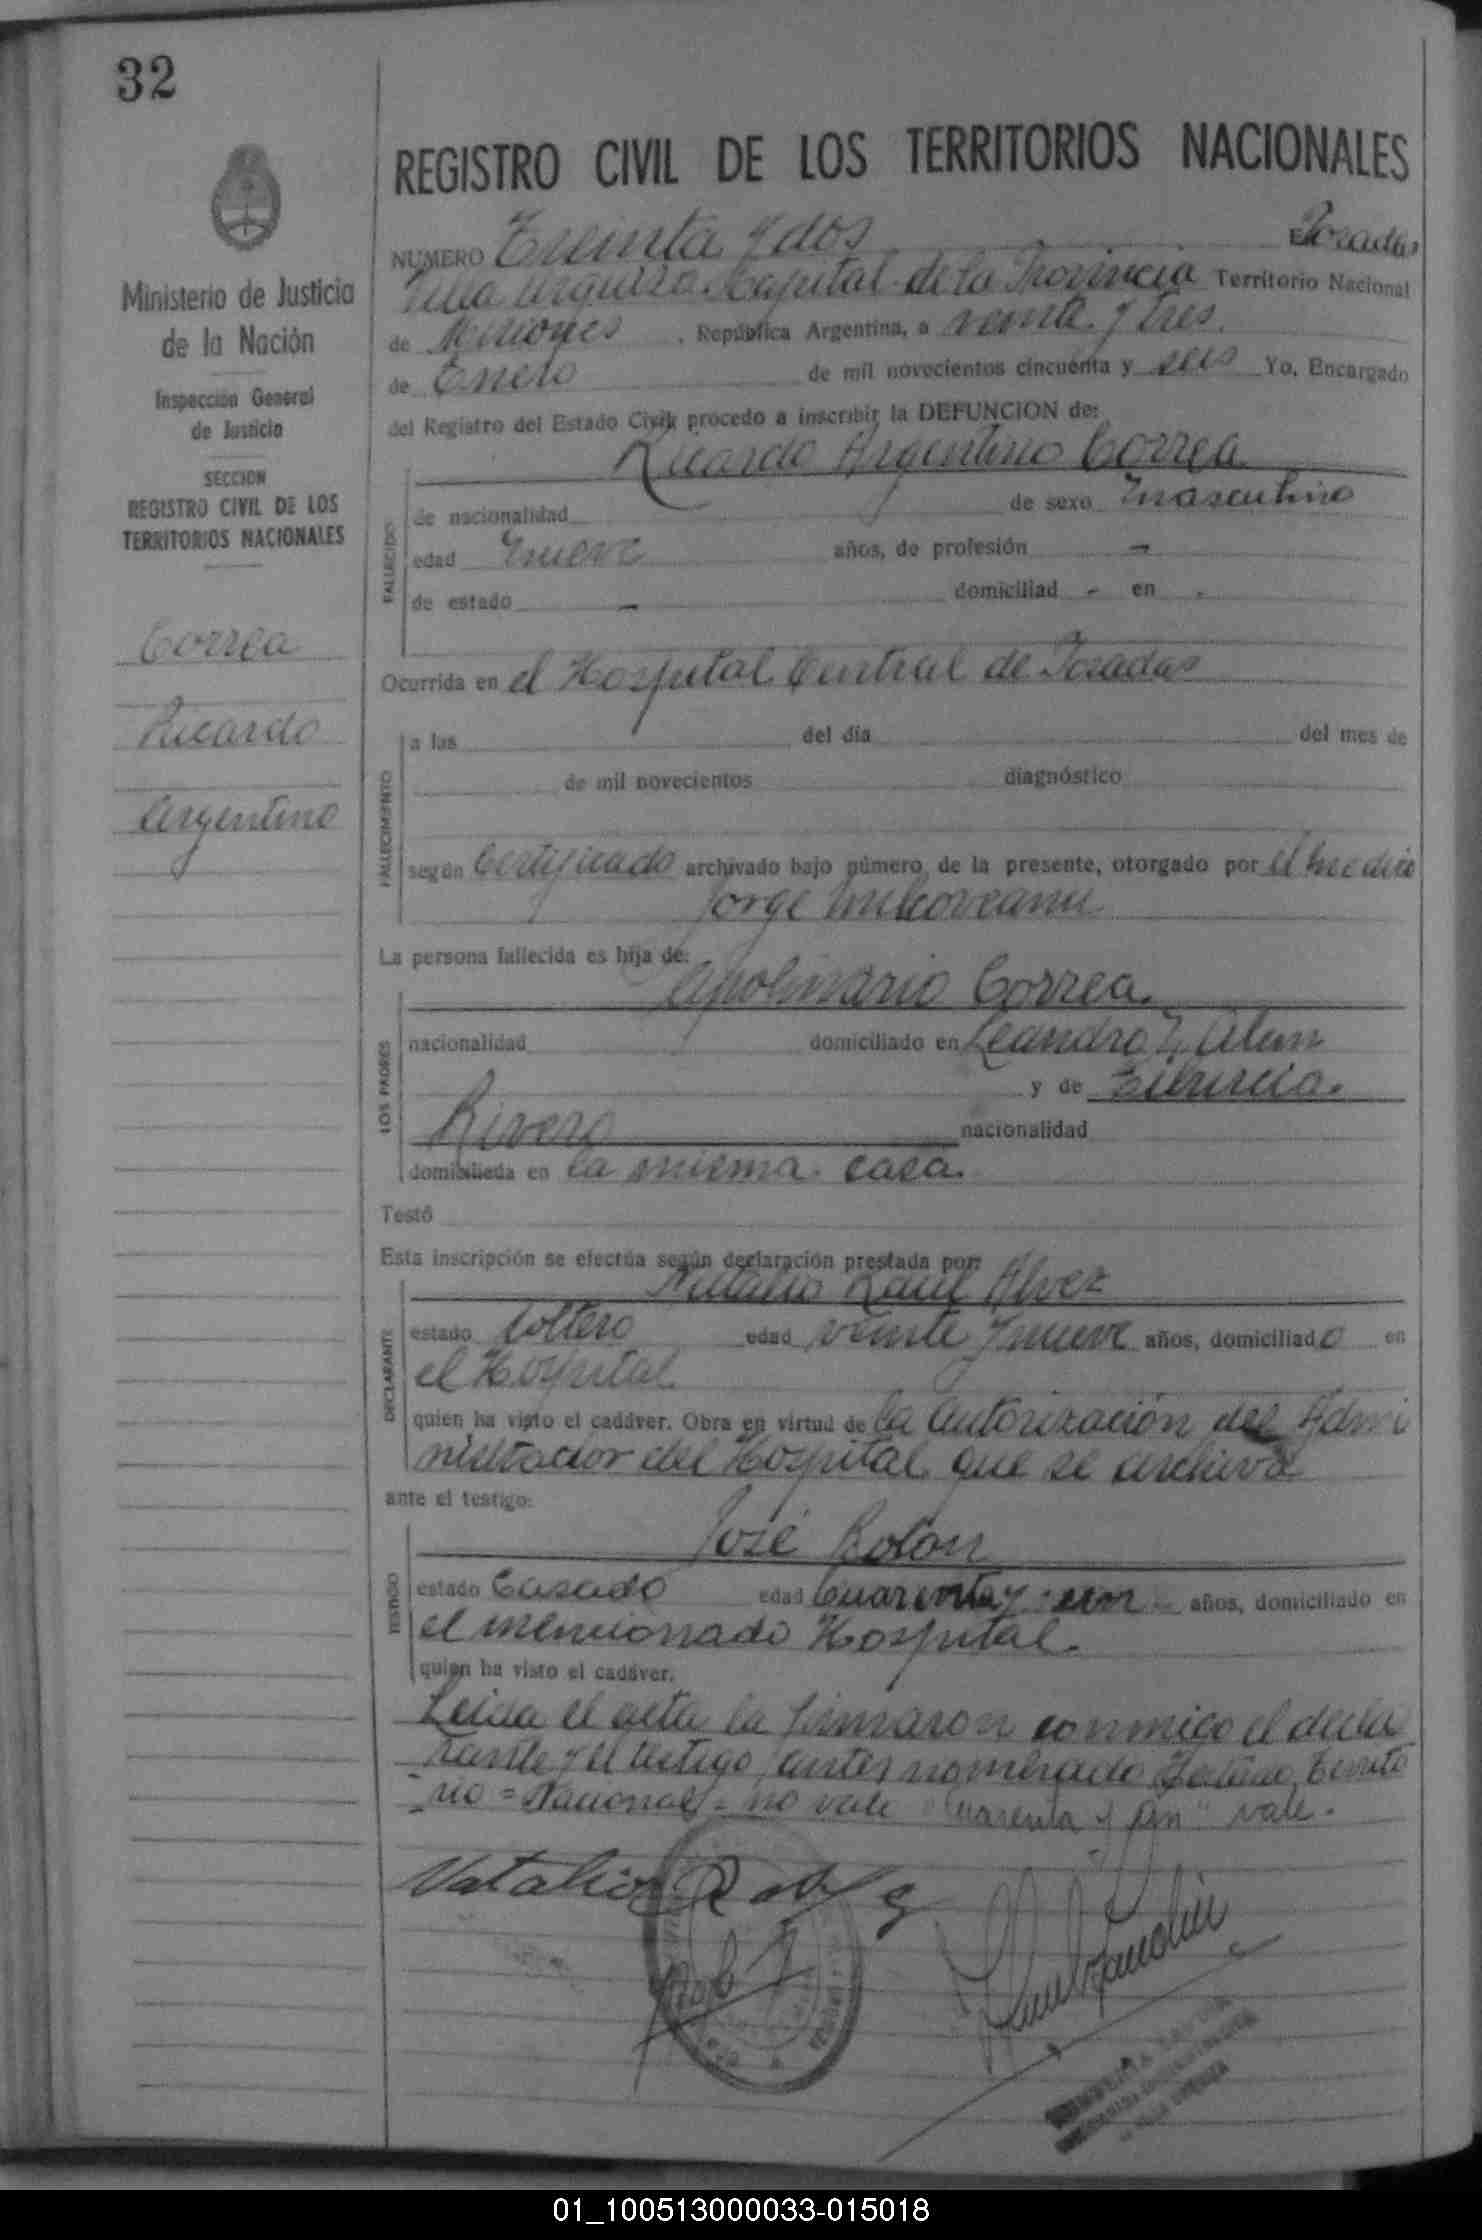 32
REGISTRO CIVIL DE LOS TERRITORIOS NACIONALES
Ministerio de Justicia
de la Nación
Inspección General
de Justicia
SECCION
REGISTRO CIVIL DE LOS
TERRITORIOS NACIONALES
Correa
Ricardo
Argentino
NUMERO Treinta y dos Posadas
Villa Urquiza Capital de la Provincia Territorio Nacional
de Misiones, República Argentina, a veinte y tres
de Enero de mil novecientos cincuenta y seis Yo, Encargado
del Registro del Estado Civil, procedo a inscribir la DEFUNCION de:
Ricardo Argentino Correa
FALLECIDO
de nacionalidad de sexo masculino
edad nueve años, de profesión -
de estado - domiciliad - en -
Ocurrida en el Hospital Central de Posadas
FALLECIMIENTO
a las del día del mes de
de mil novecientos diagnóstico
según Certificado archivado bajo número de la presente, otorgado por el medico
Jorge
La persona fallecida es hija de:
Apolinario Correa.
LOS PADRES
nacionalidad domiciliado en Leandro N. Alem
y de Tiburcia.
Rivero nacionalidad
domiciliada en la misma casa.
Testó
Esta inscripción se efectúa según declaración prestada por:
Natalio Raul Alvez
DECLARANTE
estado soltero edad veinte y nueve años, domiciliado en
el Hospital
quien ha visto el cadáver. Obra en virtud de la autorización del Admi
nistrador del Hospital que se archiva
ante el testigo:
José Rolon
TESTIGO
estado Casado edad Cuarenta y un años, domiciliado en
el mencionado Hospital.
quien ha visto el cadáver.
Leida el acta la firmaron conmigo el decla
rante y el testigo antes nombrado Testado Territo
rio = Nacional = no vale "Cuarenta y un" vale.
Natalio R
01_100513000033-015018